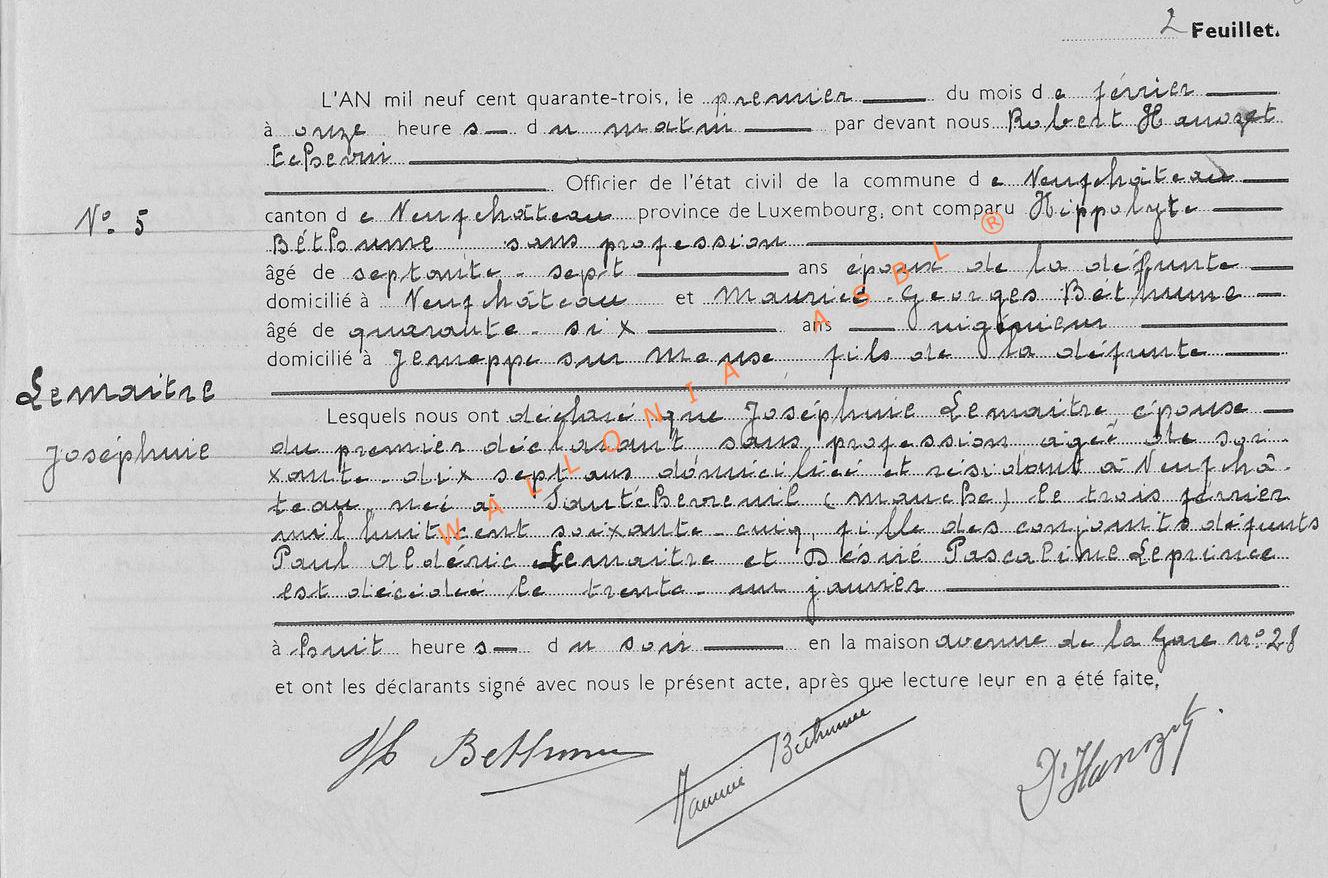 2 Feuillet.
L'AN mil neuf cent quarante-trois, le premier du mois de février
à onze heures du matin par devant nous Robert Hanozet
Echevin
Officier de l'état civil de la commune de Neufchâteau
N° 5
canton de Neufchâteau province de Luxembourg, ont comparu Hippolyte
Béthune sans profession
âgé de septante-sept ans époux de la défunte
domicilié à Neufchâteau et Maurice Georges Béthune
âgé de quarante-six ans ingénieur
domicilié à Jemeppe sur Meuse fils de la défunte
Lemaitre
Joséphine
Lesquels nous ont déclaré que Joséphine Lemaitre épouse
du premier déclarant sans profession agée de soi-
xante-dix sept ans domiciliée et résidant à Neufchâ-
teau née à (manche) le trois février
mil huit cent soixante-cinq, fille des conjoints défunts
Paul Aldéric Lemaitre et Désiré Pascaline Leprince
est décédée le trente-un janvier
à huit heures du soir en la maison avenue de la Gare n° 28
et ont les déclarants signé avec nous le présent acte, après que lecture leur en a été faite,
Béthune
Maurice Béthune
Dr Hanozet
WALLONIA ASBL ®